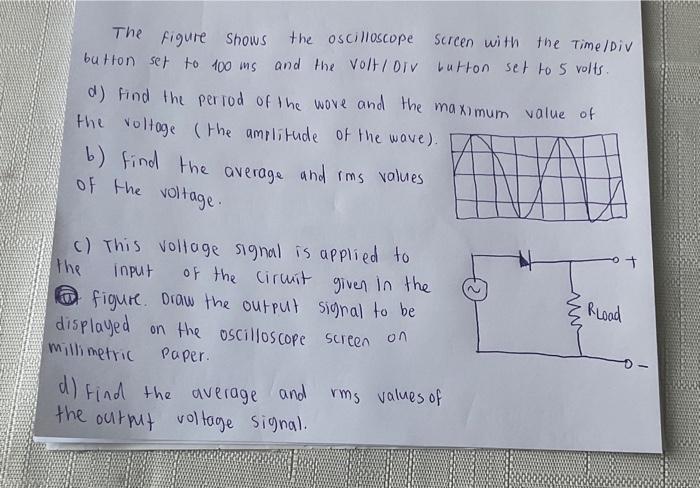 The figure shows the oscilloscope screen with the Time/Div
button set to 100 ms and the Volt/Div button set to 5 volts.
a) Find the period of the wave and the maximum value of
the voltage (the amplitude of the wave).
b) Find the average and rms values
of the voltage.
c) This voltage signal is applied to
the input of the circuit given in the
figure. Draw the output signal to be
displayed on the oscilloscope screen on
millimetric paper.
d) Find the average and rms values of
the output voltage signal.
+
RLoad
-